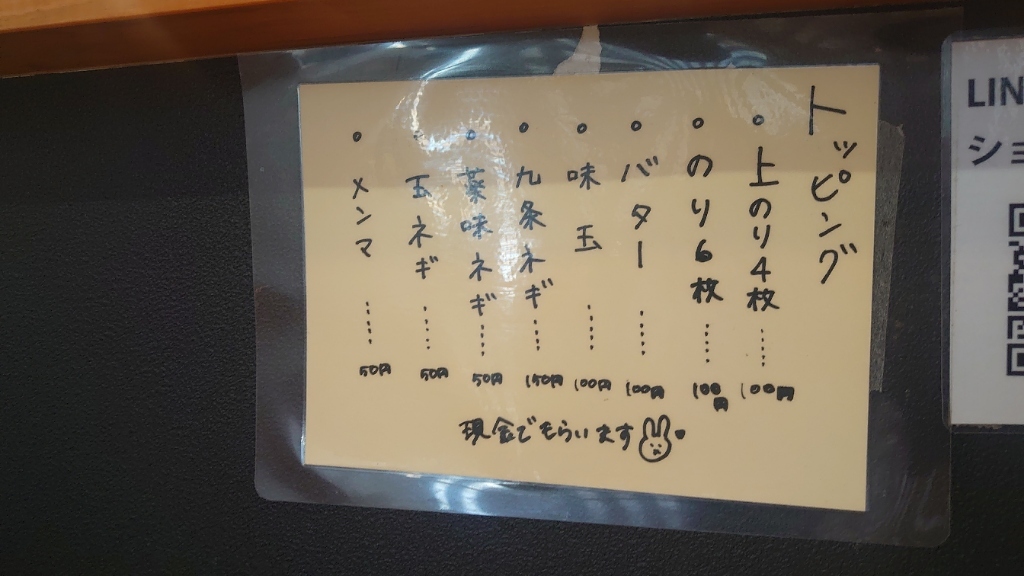 トッピング
。上のり4枚……100円
。のり6枚……100円
。バター……100円
。味玉……100円
。九条ネギ……150円
。薬味ネギ……50円
。玉ネギ……50円
。メンマ……50円
現金でもらいます
LIN
ショ